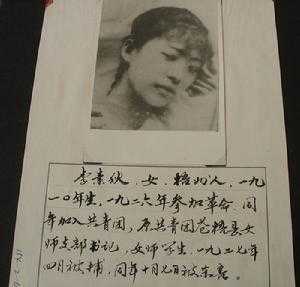 李素秋,女,梧州人,一九
一〇年生,一九二六年参加革命 同
年加入共青团,原共青团苍梧县女
师支部书记,女师学生,一九二七年
四月被捕,同年十月 被杀害。